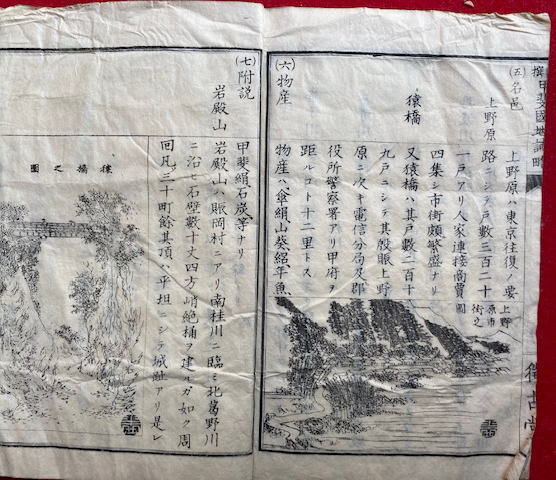 甲斐國地誌略
(五)名邑
上野原
上野原ハ東京往復ノ要
路ニシテ戸數三百二十
一戸アリ人家連接商賈
四集シ市街頗繁盛ナリ
上野
原市
街之
圖
猿橋
又猿橋ハ其戸數二百十
九戸ニシテ其殷賑上野
原ニ次キ電信分局及郡
役所警察署アリ甲府ヲ
距ルコト十二里トス
(六)物産
物産ハ傘絹山葵紹年魚
甲斐絹石炭等ナリ
(七)附説
岩殿山
岩殿山ハ賑岡村ニアリ南桂川ニ臨ミ北葛野川
ニ沿ヒ石壁數十丈四方峭絶桶ヲ建ルガ如ク周
回凡三十町餘其頂ハ平坦ニシテ城趾アリ是レ
猿橋之圖